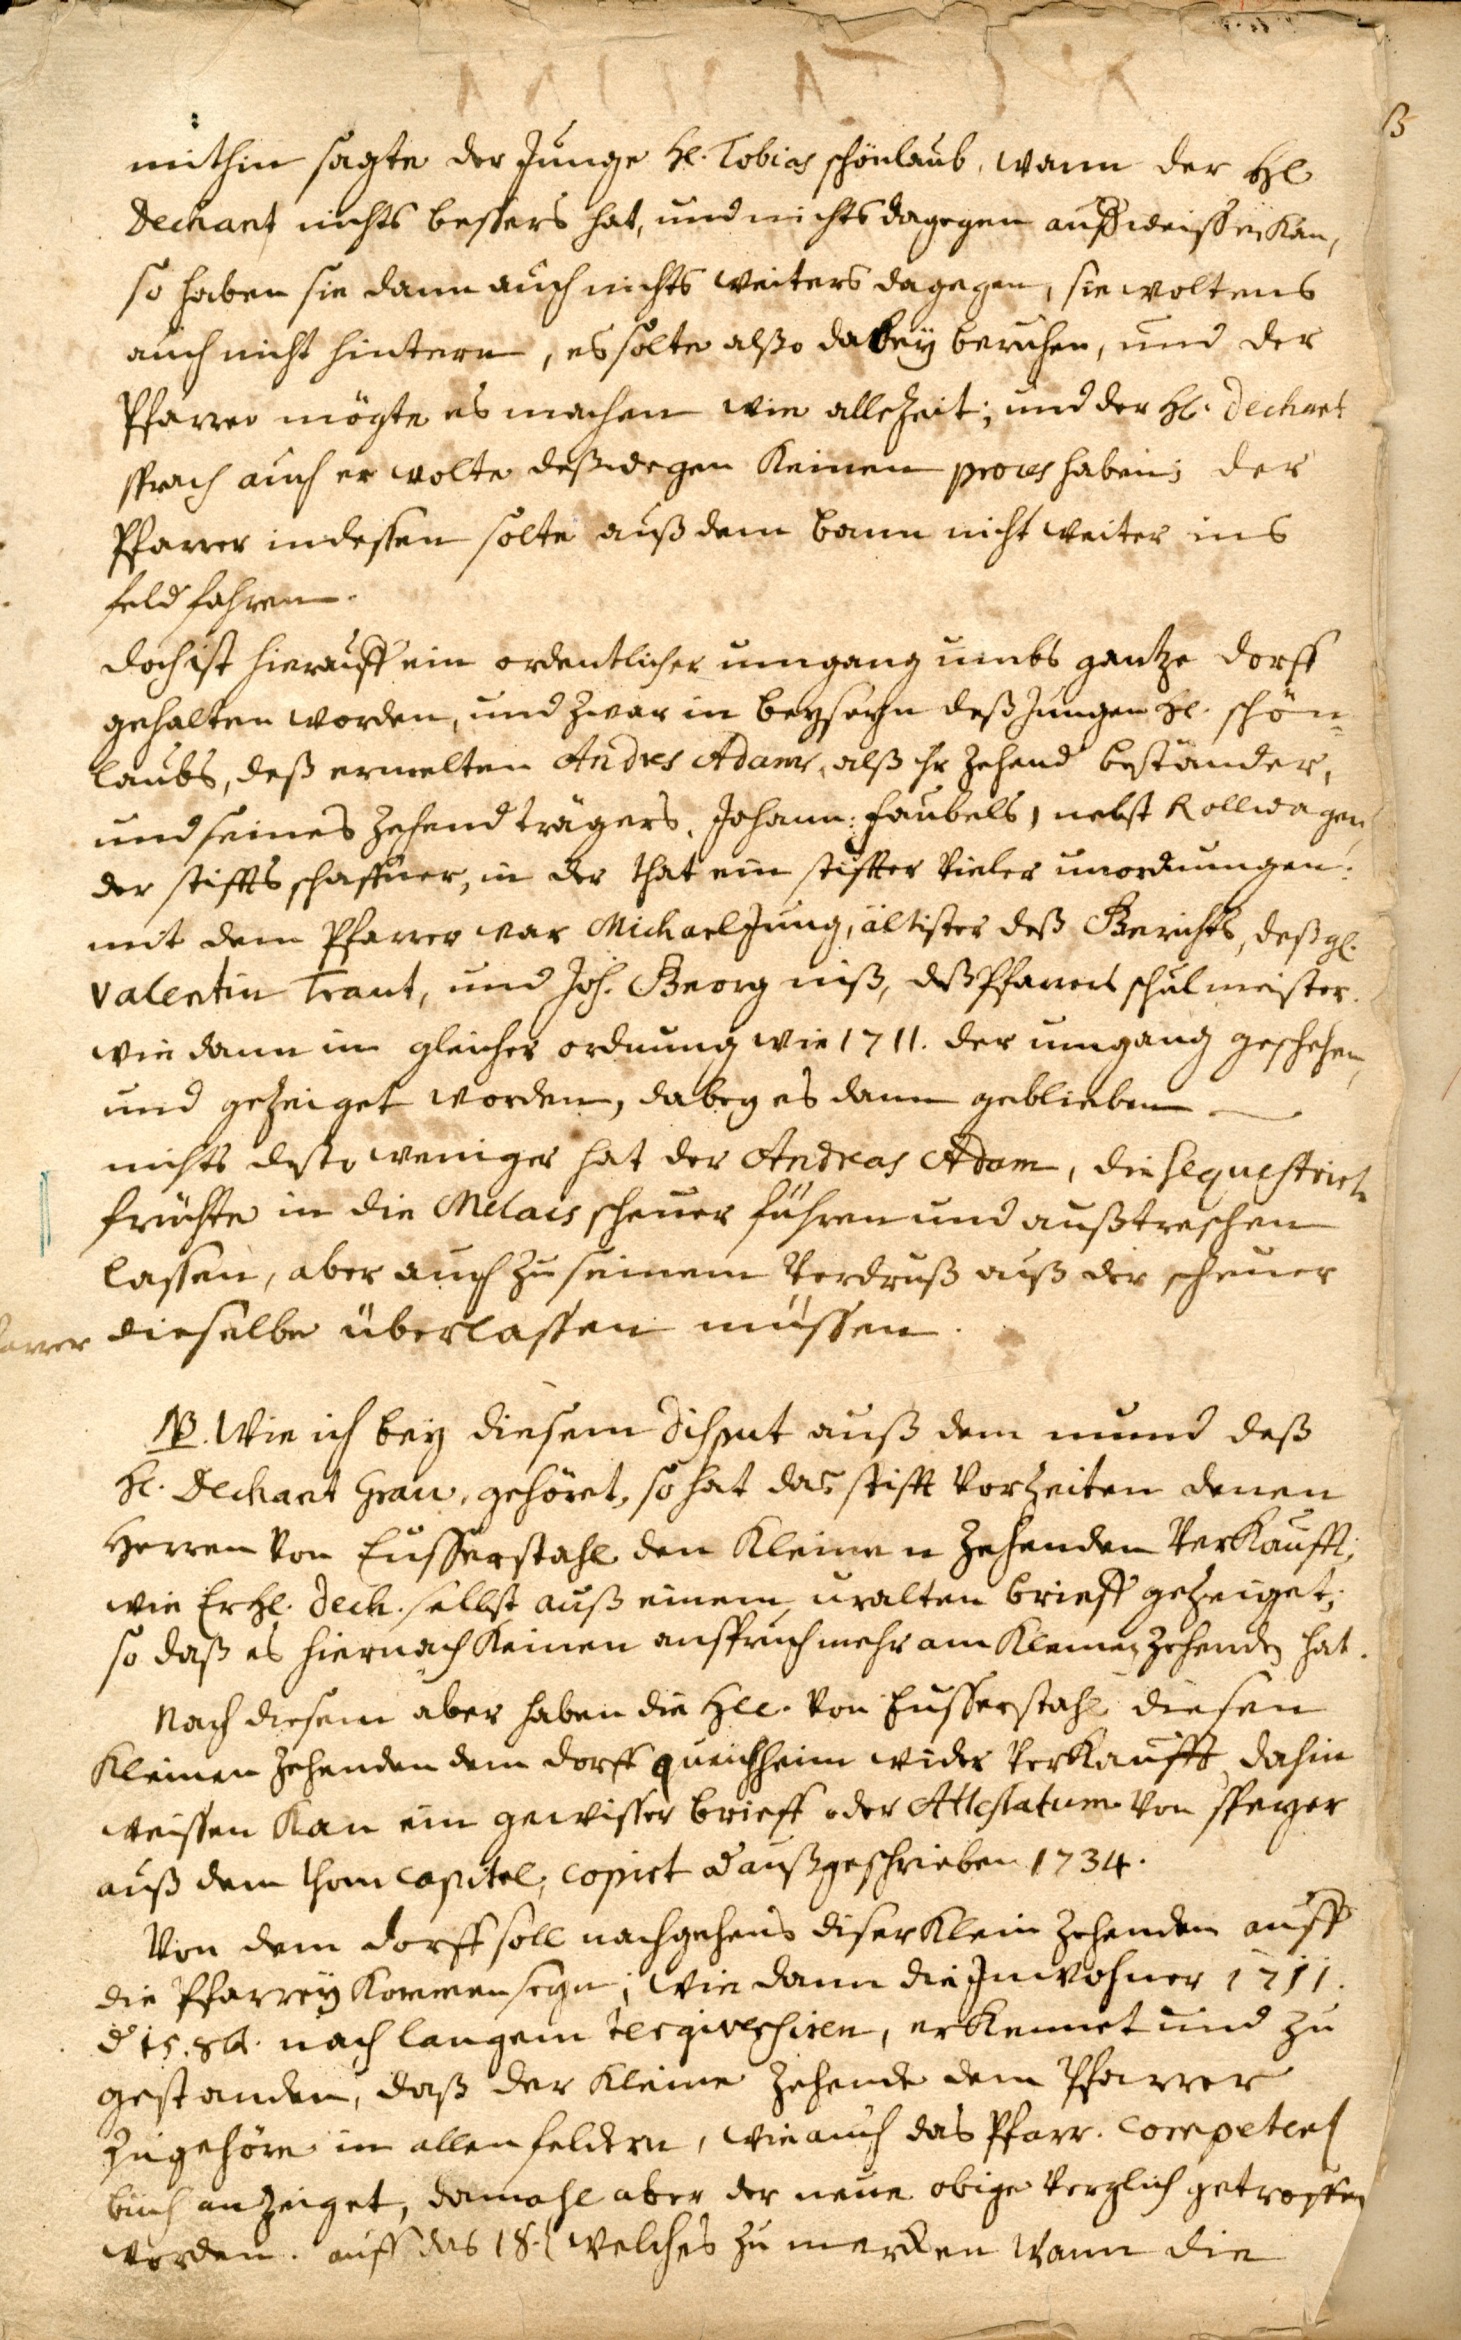 mithin sagte der Junge H. Tobias schönlaub, wann der H
Dechant nichts bessers hat, und nichts dagegen außweissen kan,
so haben sie dann auch nichts weiters dagegen, sie woltens
auch nicht hintern, es solte alßo dabey beruhen, und der
Pfarrer mögte es machen wie allezeit; und der H. Dechant
sprach auch er wolte deßwegen keinen proces haben; der
Pfarrer indessen solte auß dem bann nicht weiter ins
feld fahren.
doch ist hierauff ein ordentlicher umgang umbs gantze dorff
gehalten worden, und zwar in beyseyn deß Jungen H. schön=
laubs, deß ermelten Andres Adams, alß ihr zehend beständer,
und seines zehend trägers, Johann: Faubels, nebst Kollwagen
der stiffts schaffner, in der that ein stiffter vieler unordnungen:
mit dem Pfarrer war Michael Jung, ältister deß Gerichts, deßgl.
Valentin Traut, und Joh. Georg Niß, deß Pfarrers schulmeister.
wie dann in gleicher ordnung wie 1711. der umgang geschehen,
und gezeiget worden, dabey es dann geblieben
nichts desto weniger hat der Andreas Adam, die sequestrirte
früchte in die Melais scheuer führen und außtreschen
lassen, aber auch zu seinem Verdruß auß der scheuer
dieselbe überlassen müssen.
NB. Wie ich bey diesem Disput auß dem mund deß
H. Dechant Grau, gehöret, so hat das stifft vorzeiten denen
Herren von Eusserstahl den Kleinen Zehenden verkaufft,
wie Er H. Dech. selbst auß einem uralten brieff gezeiget;
so daß es hiernach keinen anspruch mehr am Kleinen Zehenden hat.
Nach diesem aber haben die HH. von Eusserstahl diesen
Kleinen Zehenden dem dorff queichheim wider verkaufft, dahin
weissen kan ein gewisser brieff oder Attestatum von speyer
auß dem thom capitel, copirt & außgeschrieben 1734.
Von dem dorff soll nachgehens diser Klein Zehenden auff
die Pfarrey kommen seyn; wie dann die Inwohner 1711.
d 15. 8b. nach langem tergiversiren, erkennet und zu
gestanden, daß der Kleine Zehende dem Pfarrer
zugehöre in allen feldern, wie auch das Pfarr. Competenz
buch anzeiget, damahl aber der neue obige verglich getroffen
worden. auff das 18. welches zu mercken wann die